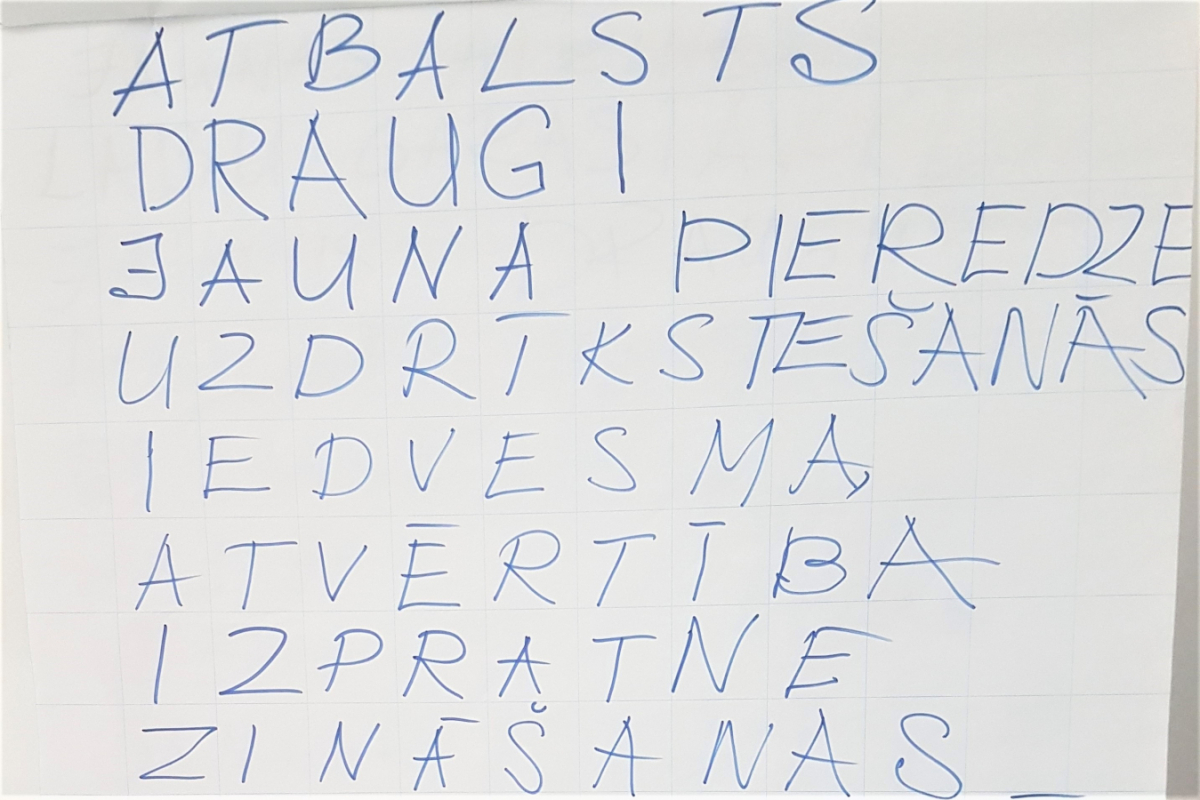 ATBALSTS
DRAUGI
JAUNA PIEREDZE
UZDRĪKSTEŠANĀS
IEDVESMA
ATVĒRTĪBA
IZPRATNE
ZINĀŠANAS